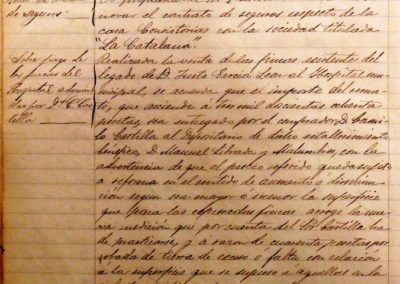 de Seguros
novar el contrato de seguros respecto de la
casa Consistorial con la sociedad titulada
"La Catalana"
Sobre pago de
los bienes del
Hospital
por Dn C
tilla
Realizada la venta de las fincas existentes del
legado de D. Justo Garcia Leon al Hospital mu-
nicipal, se acuerda que el importe del rema-
te, que asciende a tres mil doscientas ochenta
pesetas, sea entregado por el comprador D. Cami-
lo Castilla al Depositario de dicho establecimiento
benéfico, D. Manuel Lebrado y Malumbres, con la
advertencia de que el precio referido queda sujeto
a reforma en el sentido de aumento ó disminu-
ción segun sea mayor ó menor la superficie
que para las expresadas fincas arroje la nue-
va medición que por cuenta del Sr. Castilla ha
de practicarse, y á razon de cuarenta pesetas por
robada de tierra de exceso ó falta con relación
á la superficie que se supuso á aquellas en la